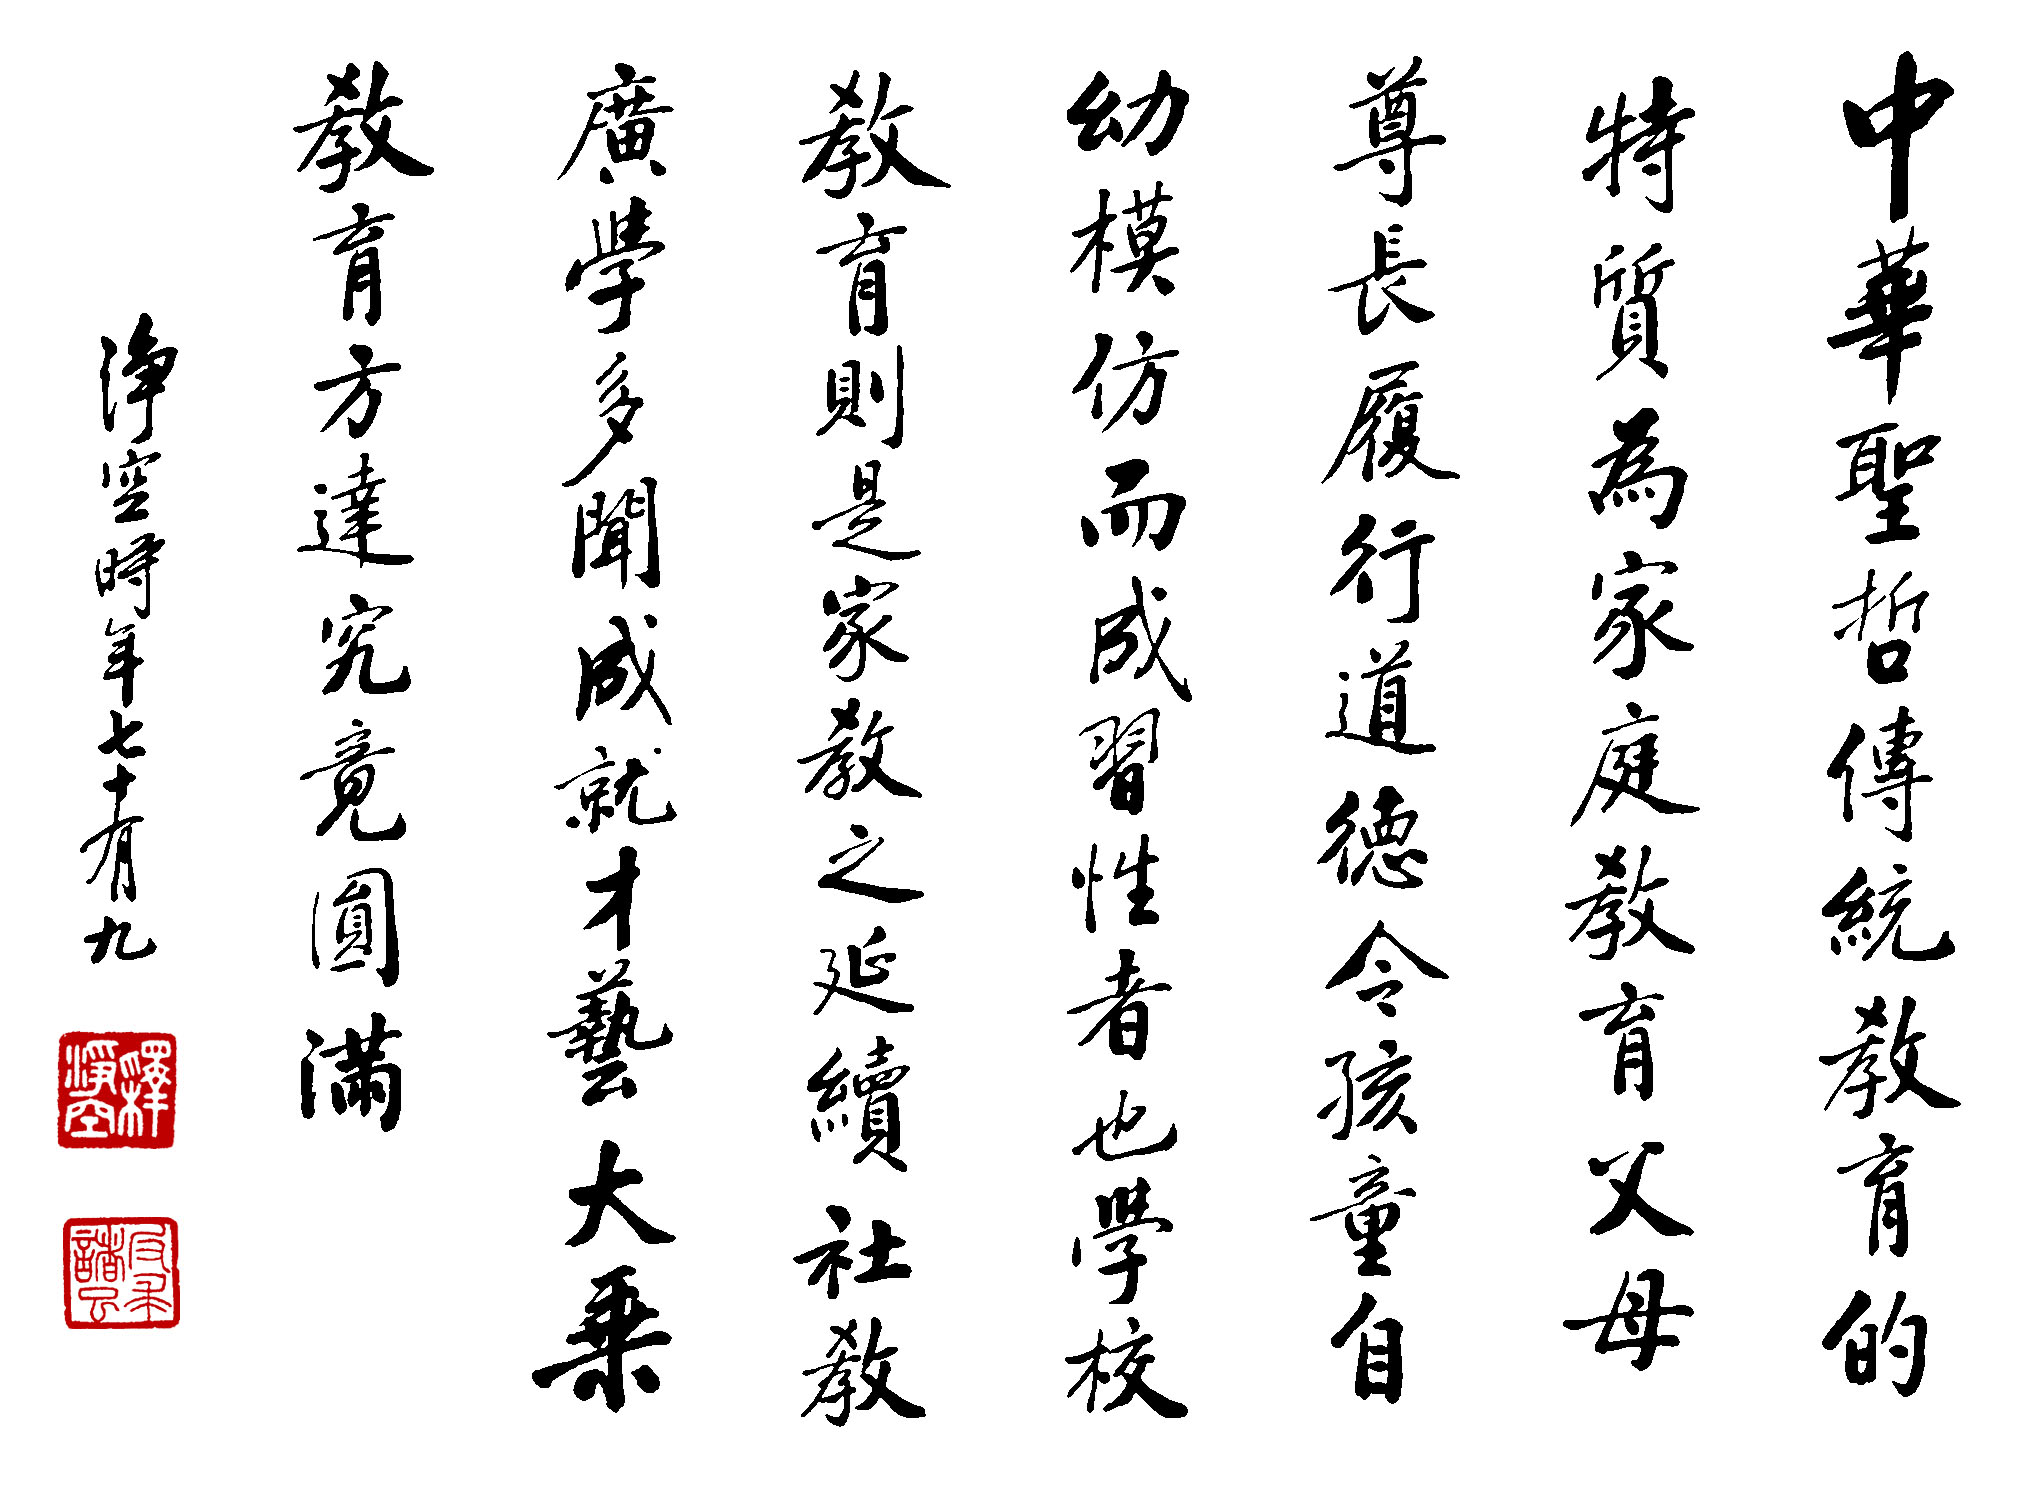 中華聖哲傳統教育的
特質為家庭教育父母
尊長履行道德令孩童自
幼模仿而成習性者也學校
教育則是家教之延續社教
廣學多聞成就才藝大乘
教育方達究竟圓滿
淨空時年七十有九
釋淨空